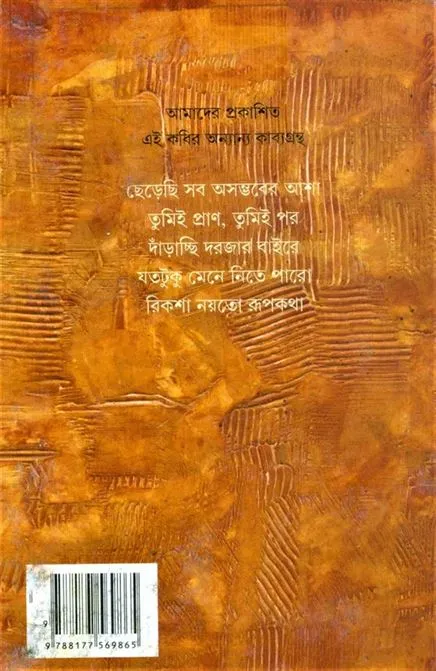 আমাদের প্রকাশিত
এই কবির অন্যান্য কাব্যগ্রন্থ
ছেড়েছি সব অসম্ভবের আশা
তুমিই প্রাণ, তুমিই পর
দাঁড়াচ্ছি দরজার বাইরে
যতটুকু মেনে নিতে পারো
রিকশা নয়তো রূপকথা
9
9 788177 569865